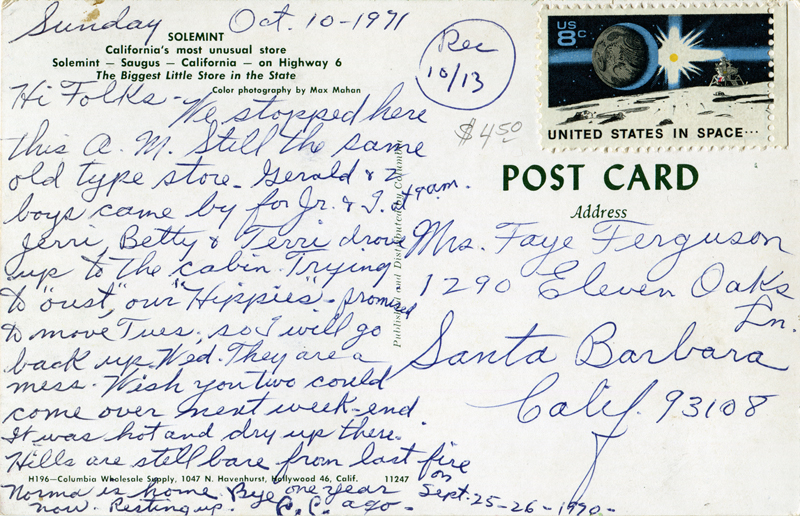 Sunday Oct. 10-1971
SOLEMINT
California's most unusual store
Solemint — Saugus — California — on Highway 6
The Biggest Little Store in the State
Color photography by Max Mahan
Hi Folks - We stopped here
this A.M. Still the same
old type store. Gerald & 2
boys came by for Jr. & I at 9 am.
Jerri, Betty & Terri drove
up to the cabin. Trying
to "oust" our "Hippies" - promised
to move Tues, so I will go
back up Wed. They are a
mess. Wish you two could
come over next week-end
It was hot and dry up there.
Hills are still bare from last fire
on Sept. 25-26-1970-
one year
ago-
Norma is home. Bye
now. Resting up. C.C.
H196—Columbia Wholesale Supply, 1047 N. Havenhurst, Hollywood 46, Calif. 11247
Published and Distributed by Columbia
Rec
10/13
$4.50
US
8c
UNITED STATES IN SPACE...
POST CARD
Address
Mrs. Faye Ferguson
1290 Eleven Oaks
Ln.
Santa Barbara
Calif. 93108